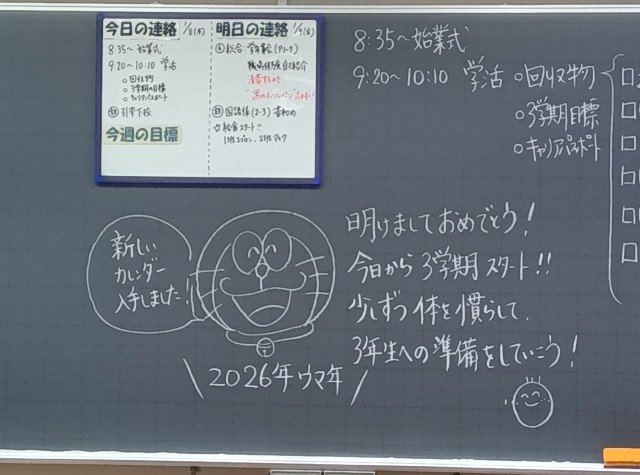 今日の連絡 1/8(木)
8:35〜始業式
9:20〜10:10 学活
○回収物
○3学期の目標
○キャリアパスポート
引率下校
今週の目標
明日の連絡 1/9(金)
総合:学年集会(アリーナ)
職場体験自己紹介
清書するので、
国語係(2-3) 書初め
☆給食スタート!!
8:35〜始業式
9:20〜10:10 学活 ○回収物
○3学期目標
○キャリアパスポート
新しい
カレンダー
入手しました!
2026年ウマ年
明けましておめでとう!
今日から3学期スタート!!
少しずつ体を慣らして、
3年生への準備をしていこう!